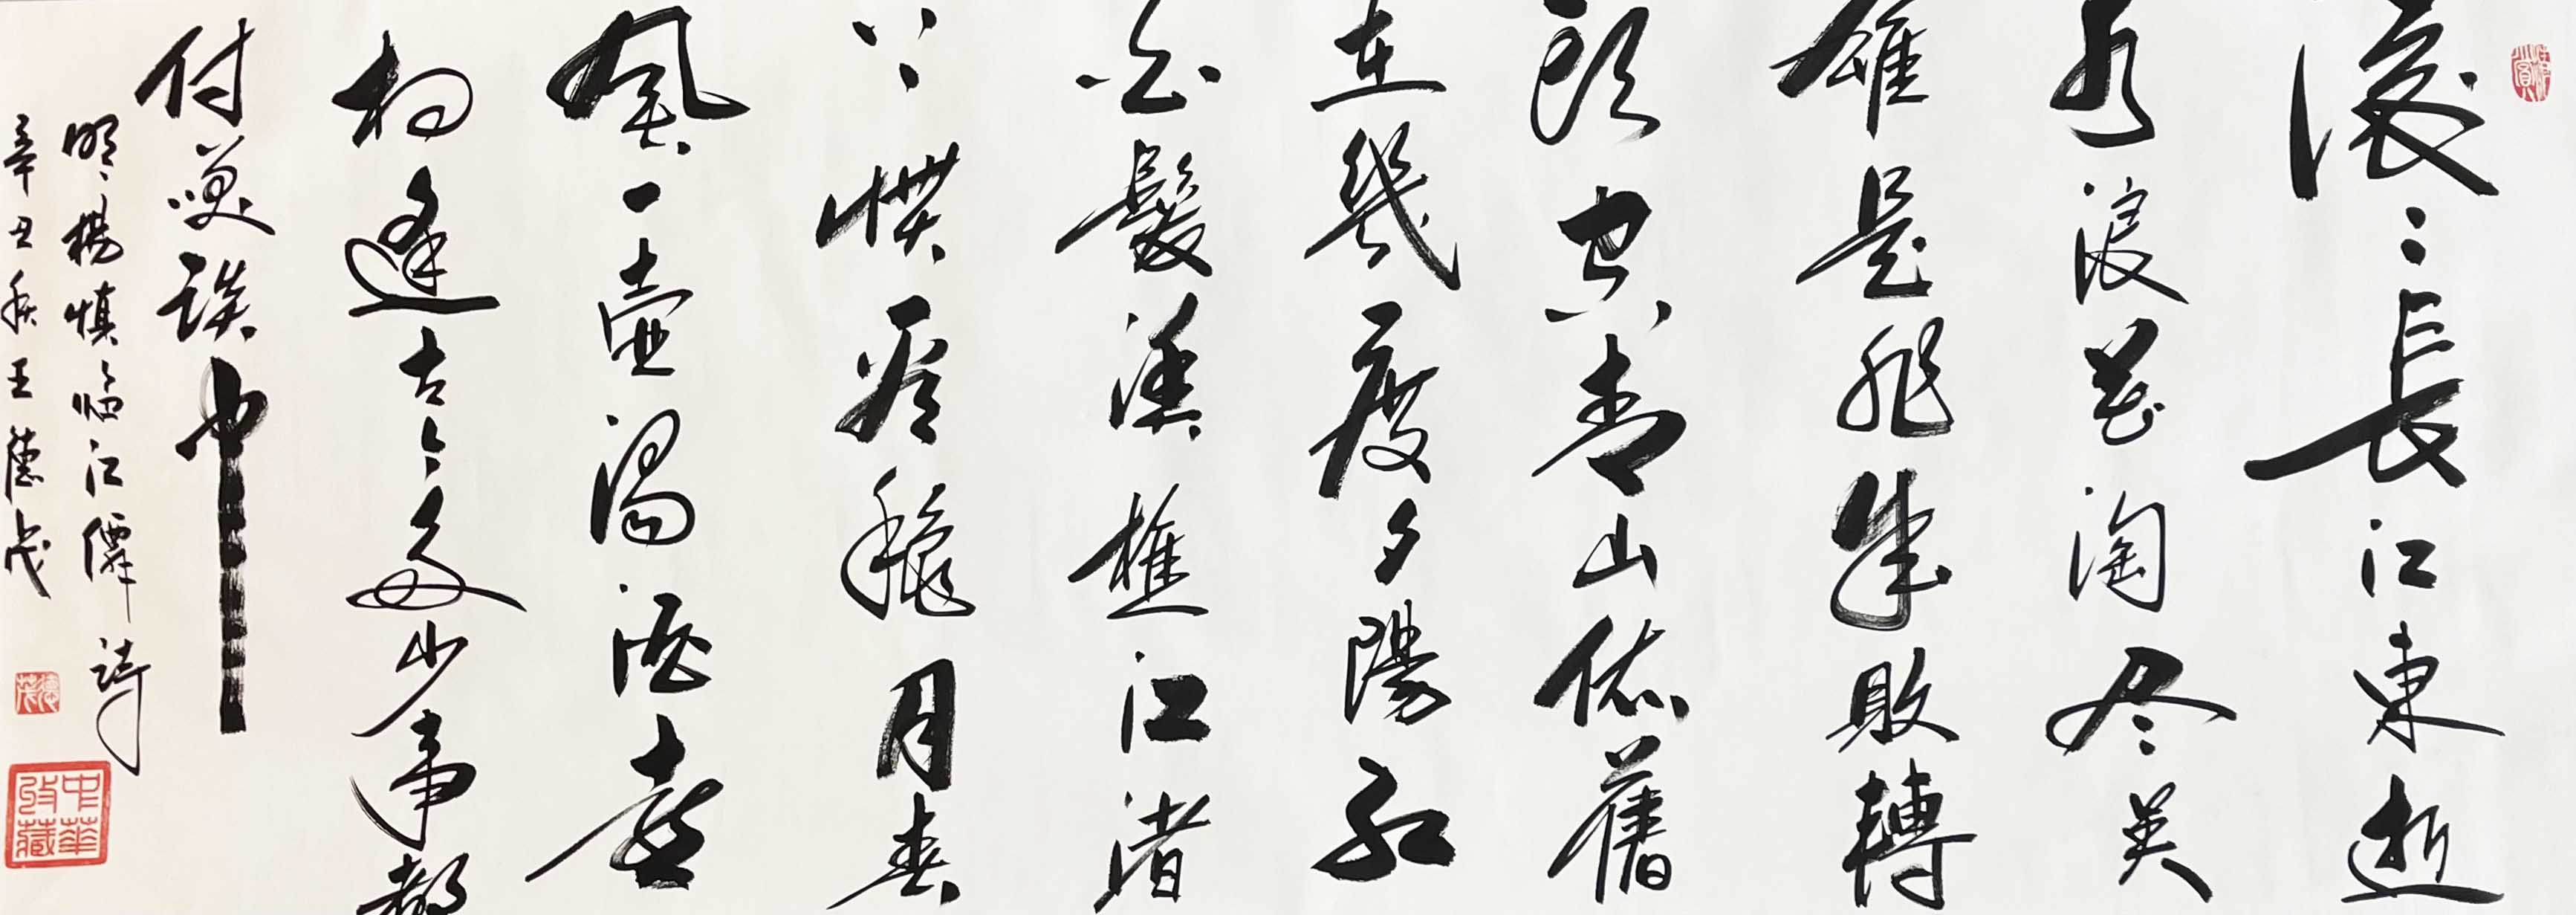 滾滾長江東逝
水浪花淘尽英
雄是非成敗轉
頭空青山依舊
在幾度夕陽紅
白髮漁樵江渚
上慣看穐月春
風一壺濁酒喜
相逢古今多少事都
付笑談中
明楊慎臨江僊詩
辛丑秋王德茂
德茂
中華收藏